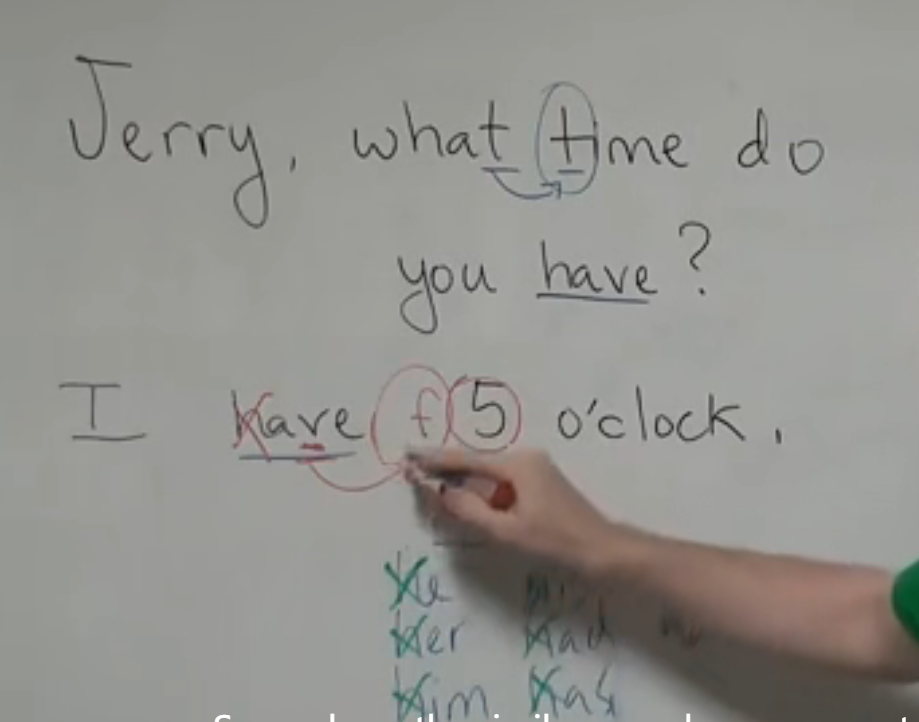 Jerry, what time do
you have?
I have f 5 o'clock.
He
Her had
Him has